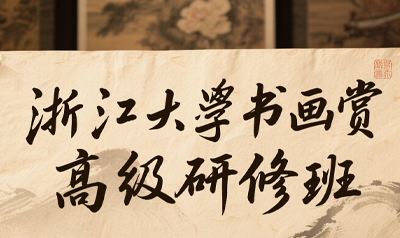 浙江大学书画赏
高级研修班